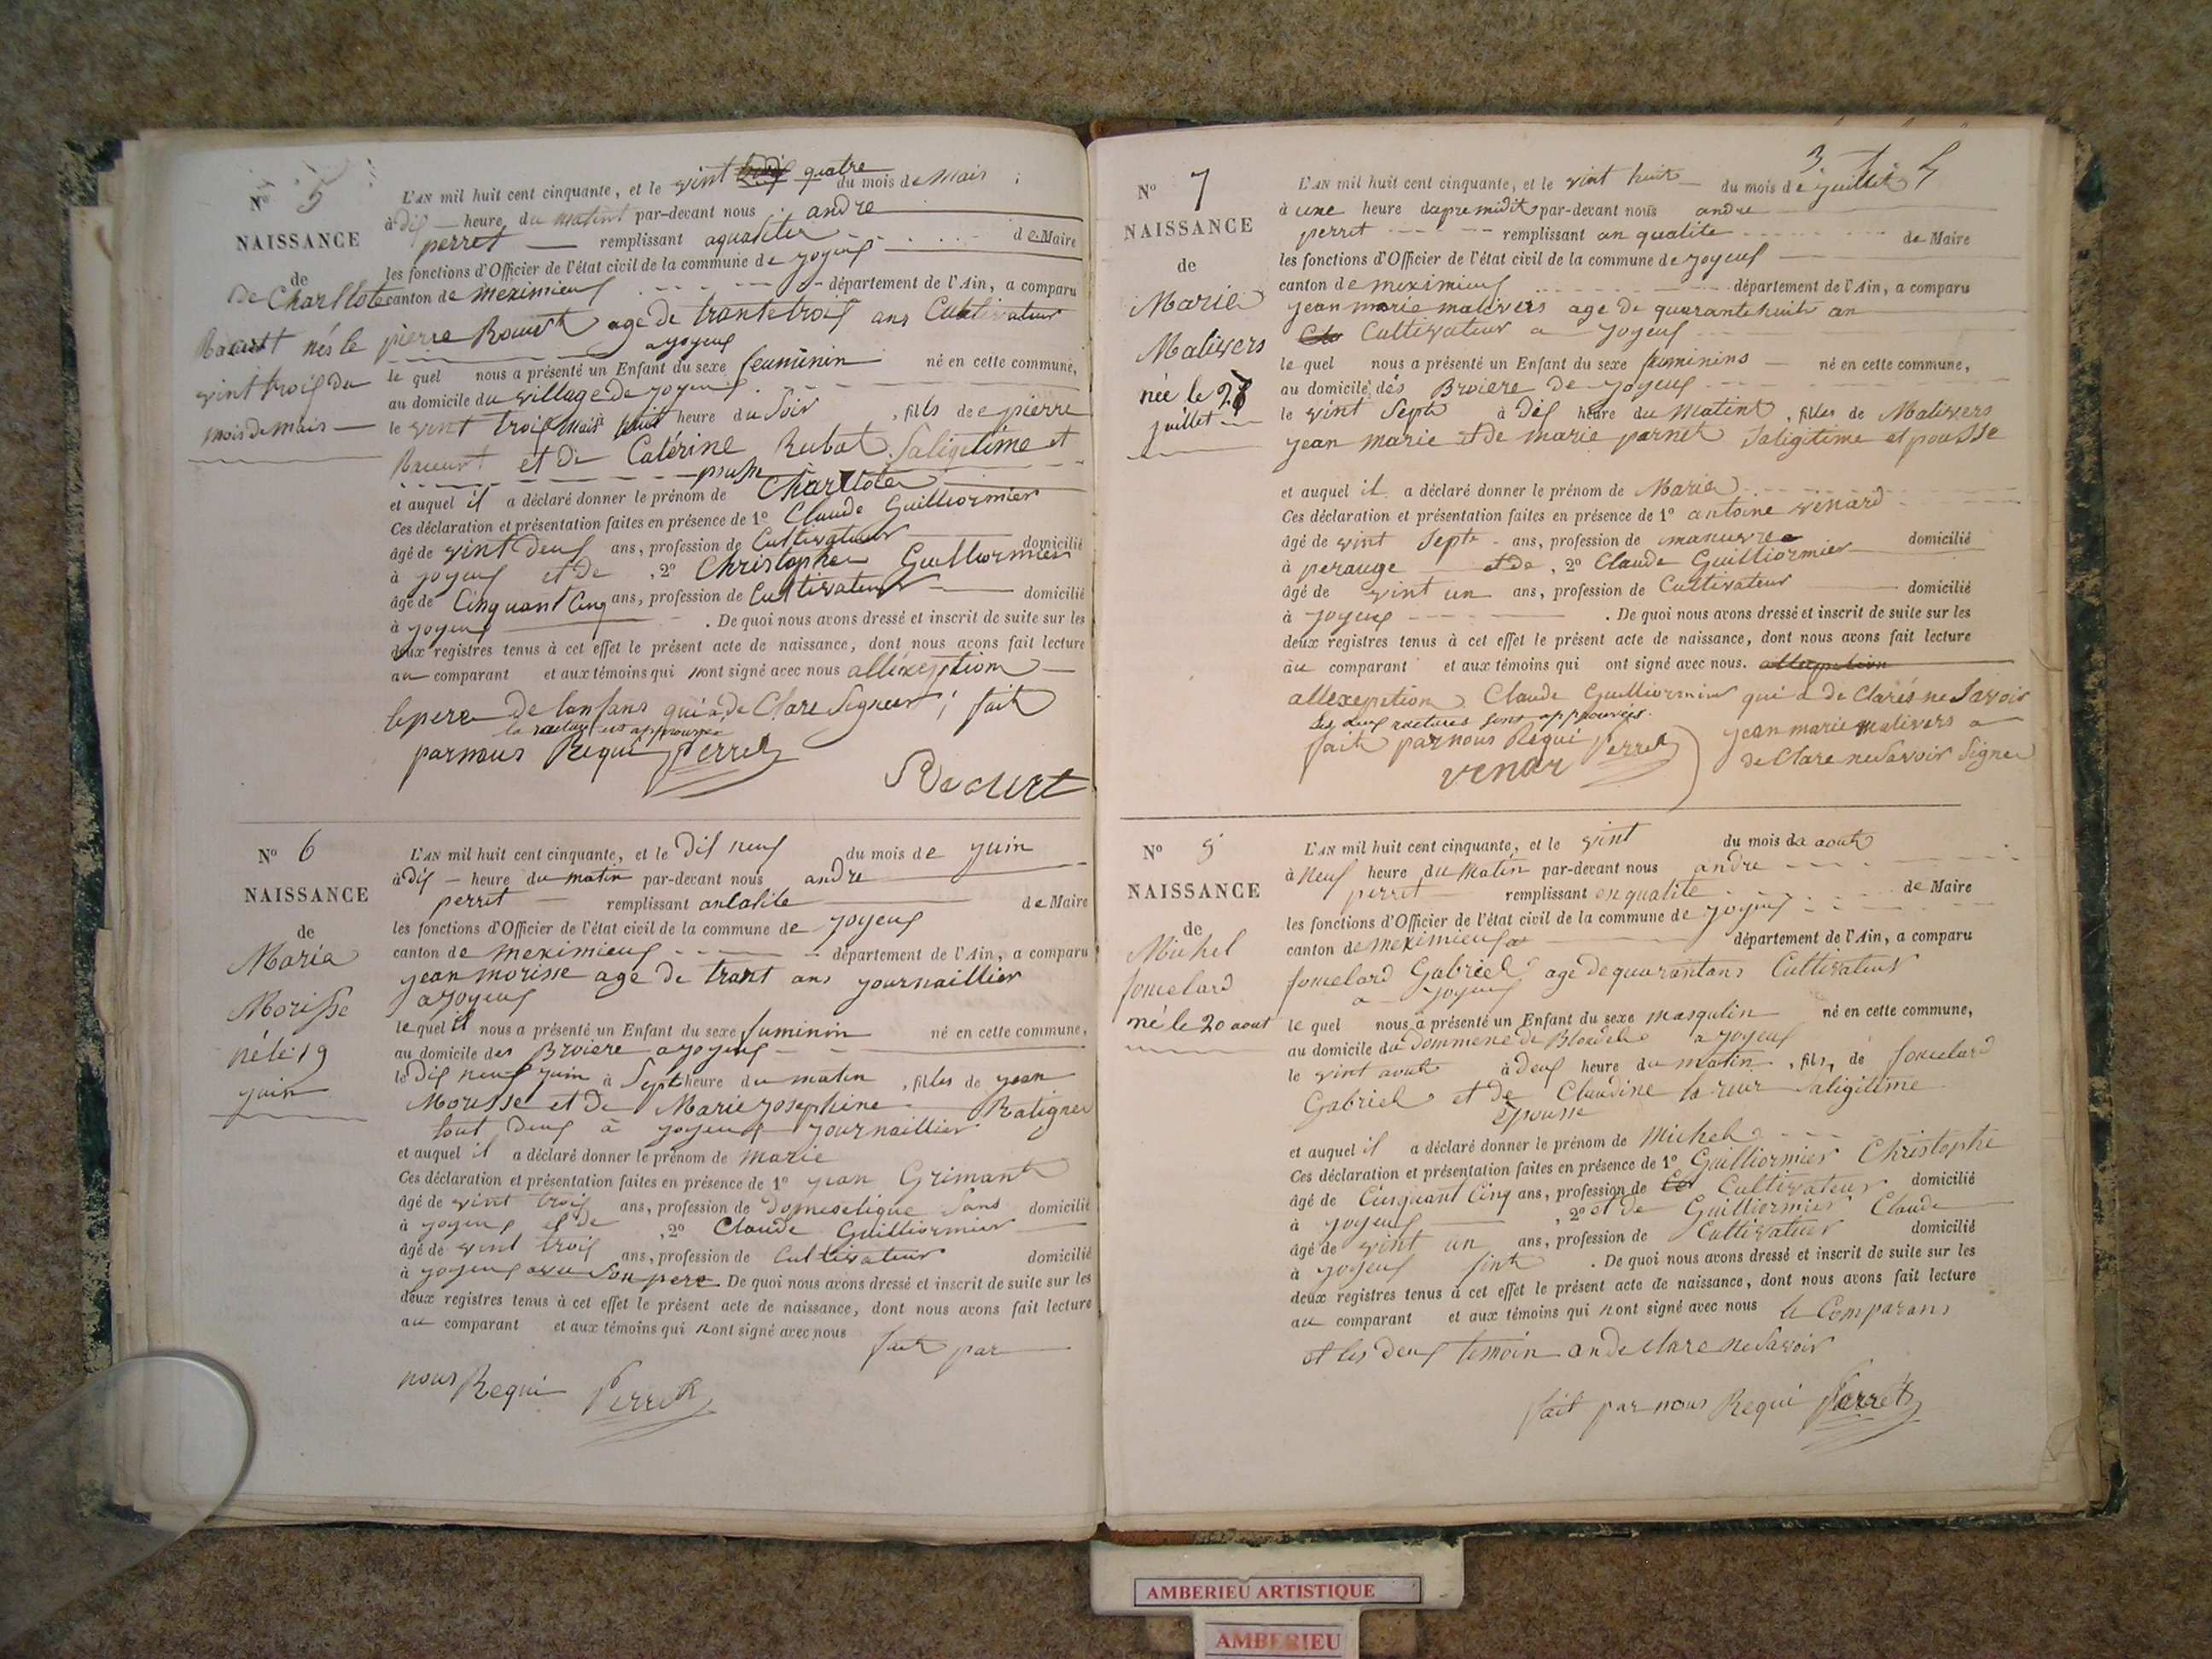 N° 5
NAISSANCE
de
de Charllote
Racurt nés le
vint trois du
mois de mais
L'AN mil huit cent cinquante, et le vint trois quatre du mois de mais
à dix heure du matint par-devant nous andre
perret remplissant aqualiter de Maire
les fonctions d'Officier de l'état civil de la commune de joyeux
canton de meximieux département de l'Ain, a comparu
pierre Rouurt age de trante troix ans Cultivateur
a joyeux
le quel nous a présenté un Enfant du sexe feuminin né en cette commune,
au domicile du village de joyeux
le vint troix mais huit heure du soir, fills de e pierre
Racurt et de Catérine Rubat Saligitime et
pousse
et auquel il a déclaré donner le prénom de Charllote
Ces déclaration et présentation faites en présence de 1° Claude Guilliormier
âgé de vint deux ans, profession de Cultivateur domicilié
à joyeux et de , 2° Christophe Guilliormier
âgé de Cinquant Cinq ans, profession de Cultivateur domicilié
à joyeux . De quoi nous avons dressé et inscrit de suite sur les
deux registres tenus à cet effet le présent acte de naissance, dont nous avons fait lecture
au comparant et aux témoins qui nont signé avec nous alléxeption
le pere de lanfans qui a de Clare Signeer ; fait
la ratuz est approuvee
par nous Requi Perret
Racurt
N° 6
NAISSANCE
de
Maria
Morisse
né le 19
juin
L'AN mil huit cent cinquante, et le dix neuf du mois de juin
à dix heure du matin par-devant nous andre
perret remplissant anlatite de Maire
les fonctions d'Officier de l'état civil de la commune de joyeux
canton de meximieux département de l'Ain, a comparu
jean morisse age de trant ans journaillier
a joyeux
le quel il nous a présenté un Enfant du sexe fuminin né en cette commune,
au domicile des Broiere a joyeux
le dix neuf juin à Sept heure du matin, filles de jean
Morisse et de Marie josephine Ratignier
tout deux a joyeux journaillier
et auquel il a déclaré donner le prénom de marie
Ces déclaration et présentation faites en présence de 1° jean Grimant
âgé de vint trois ans, profession de domestique Sans domicilié
à joyeux et de , 2° Claude Guilliormier
âgé de vint trois ans, profession de Cultivateur domicilié
à joyeux avec son pere De quoi nous avons dressé et inscrit de suite sur les
deux registres tenus à cet effet le présent acte de naissance, dont nous avons fait lecture
au comparant et aux témoins qui nont signé avec nous fait par
nous Requi Perret
3
N° 7
NAISSANCE
de
Maria
Malivers
née le 27
juillet
L'AN mil huit cent cinquante, et le vint huit du mois de juillet
à une heure dapremidit par-devant nous andre
perret remplissant an qualite de Maire
les fonctions d'Officier de l'état civil de la commune de joyeux
canton de meximieux département de l'Ain, a comparu
jean marie malivers age de quarante huit an
Cultivateur a joyeux
le quel nous a présenté un Enfant du sexe feminins né en cette commune,
au domicile des Broiere de joyeux
le vint Sept à dix heure du matint, filles de Malivers
jean marie et de marie parnet Saligitime et pousse
et auquel il a déclaré donner le prénom de Maria
Ces déclaration et présentation faites en présence de 1° antoine venard
âgé de vint Sept ans, profession de manuvre domicilié
à perauge et de , 2° Claude Guilliormier
âgé de vint un ans, profession de Cultivateur domicilié
à joyeux . De quoi nous avons dressé et inscrit de suite sur les
deux registres tenus à cet effet le présent acte de naissance, dont nous avons fait lecture
au comparant et aux témoins qui ont signé avec nous. allexeption
allexeption Claude Guilliormier qui a de Clarés ne Savoir
les deux ractures sont approuvées
fait par nous Requi Perret
venar
jean marie malivers a
de Clare ne Savoir Signer
N° 5
NAISSANCE
de
Michel
fouclard
né le 20 aout
L'AN mil huit cent cinquante, et le vint du mois da aout
à neuf heure du matin par-devant nous andre
perret remplissant en qualite de Maire
les fonctions d'Officier de l'état civil de la commune de joyeux
canton de meximieux département de l'Ain, a comparu
fouclard Gabriel age de quarantans Cultivateur
a joyeux
le quel nous a présenté un Enfant du sexe masqulin né en cette commune,
au domicile du dommene de Blondel a joyeux
le vint aout à deux heure du matin, fils, de fouclard
Gabriel et de Claudine la rue Saligitime
épousse
et auquel il a déclaré donner le prénom de michel
Ces déclaration et présentation faites en présence de 1° Guilliormier Christophe
âgé de Cinquant Cinq ans, profession de Cultivateur domicilié
à joyeux , 2° et de Guilliormier Claude
âgé de vint un ans, profession de Cultivateur domicilié
à joyeux . De quoi nous avons dressé et inscrit de suite sur les
deux registres tenus à cet effet le présent acte de naissance, dont nous avons fait lecture
au comparant et aux témoins qui nont signé avec nous le Comparans
et les deux temoin an de clare ne Savoir
fait par nous Requi Perret
AMBERIEU ARTISTIQUE
AMBERIEU